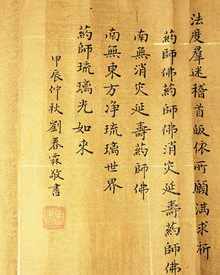 法度羣迷稽首皈依所願滿求祈
藥師佛藥師佛消災延壽藥師佛
南無消災延壽藥師佛
南無東方净琉璃世界
藥師琉璃光如來
甲辰仲秋 劉春霖敬書